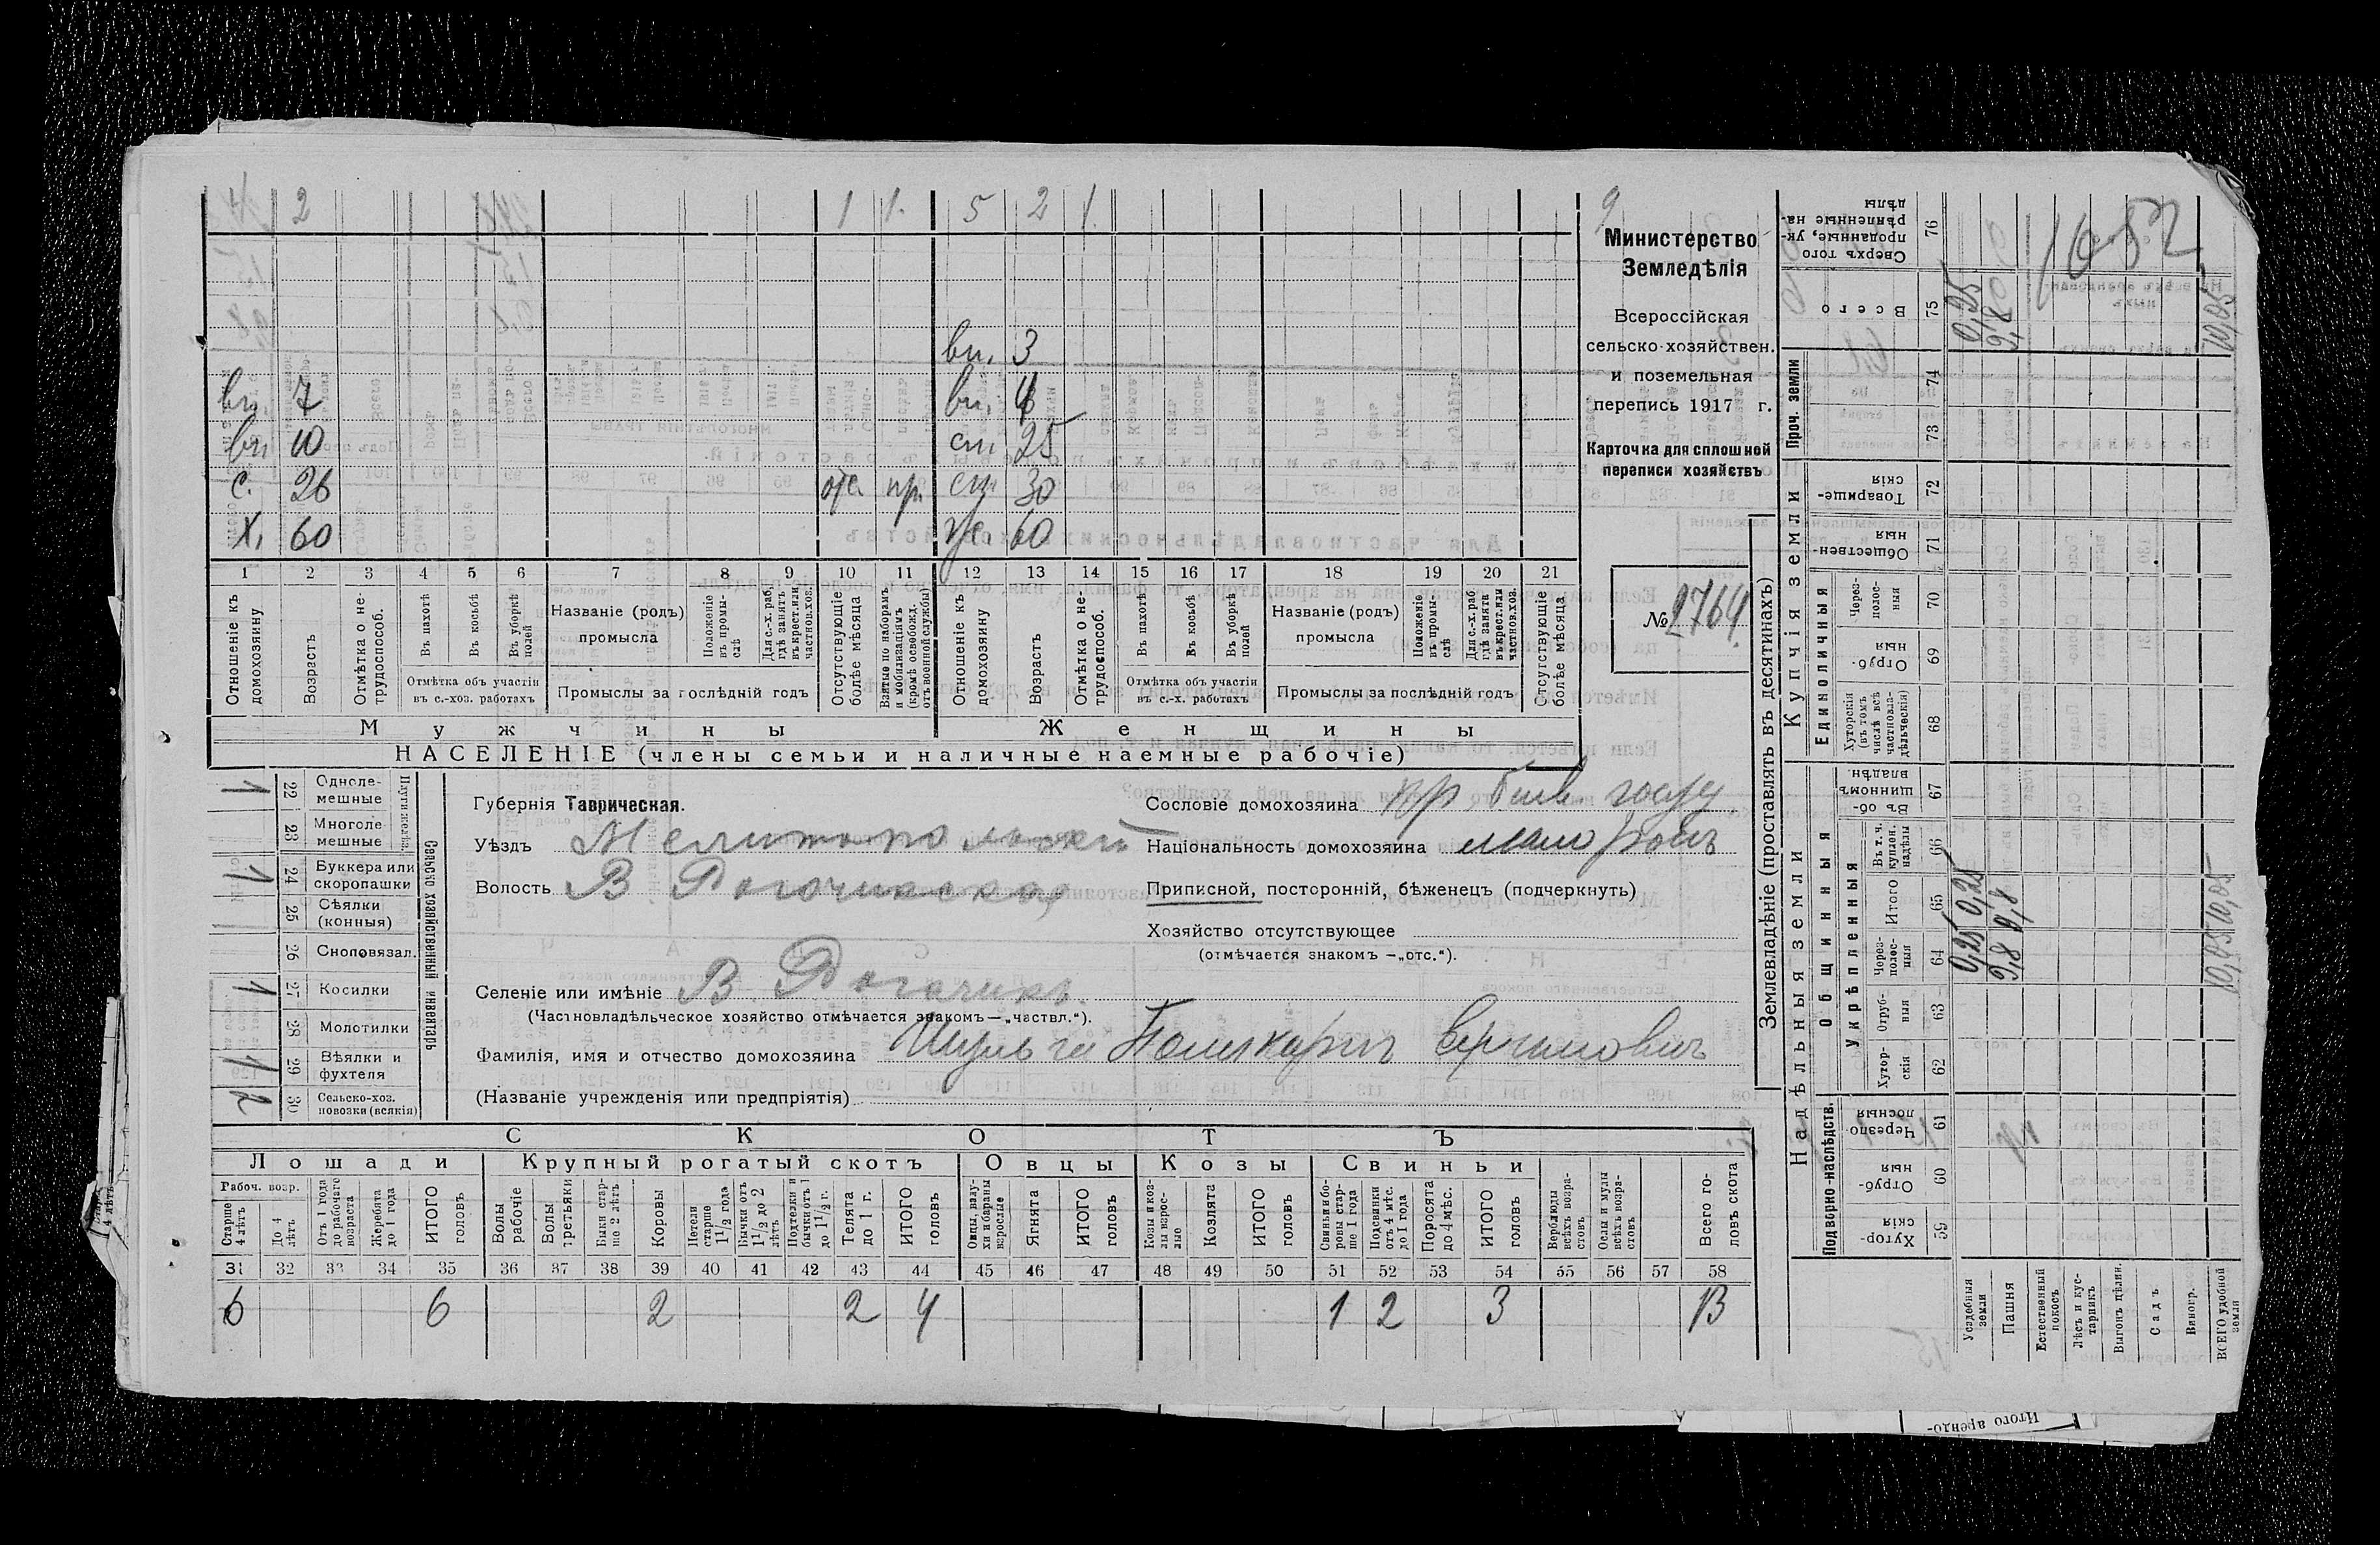 4 2 1 1. 5 2 1. 9
вн. 3
вн 7 вн. 4
вн 10 сн 25
с. 26 отс. пр. сн 30
Х. 60 же. 60
1 2 3 4 5 6 7 8 9 10 11 12 13 14 15 16 17 18 19 20 21
Отношеніе къ домохозяину
Возрастъ
Отмѣтка о не-трудоспособ.
Въ пахотѣ
Въ косьбѣ
Въ уборкѣ полей
Отмѣтка объ участіи въ с.-хоз. работахъ
Названіе (родъ) промысла
Положеніе въ промы-слѣ
Для с.-х. раб. гдѣ занятъ въ крест. или частнов. хоз.
Промыслы за послѣдній годъ
Отсутствующіе болѣе мѣсяца
Взятые по наборамъ и мобилизаціямъ (кромѣ освобожд. отъ военной службы)
Отношеніе къ домохозяину
Возрастъ
Отмѣтка о не-трудоспособ.
Въ пахотѣ
Въ косьбѣ
Въ уборкѣ полей
Отмѣтка объ участіи въ с.-х. работахъ
Названіе (родъ) промысла
Положеніе въ промы-слѣ
Для с.-х. раб. гдѣ занята въ крест. или частнов. хоз.
Промыслы за послѣдній годъ
Отсутствующіе болѣе мѣсяца
Мужчины Женщины
НАСЕЛЕНІЕ (члены семьи и наличные наемные рабочіе)
Министерство
Земледѣлія
Всероссійская
сельско-хозяйствен.
и поземельная
перепись 1917 г.
Карточка для сплошной
переписи хозяйствъ
№ 2764
1 22 Одноле-мешные
23 Многоле мешные
Плуги желѣз.
1 24 Буккера или скоропашки
25 Сѣялки (конныя)
26 Сноповязал.
1 27 Косилки
28 Молотилки
1 29 Вѣялки и фухтеля
2 30 Сельско-хоз. повозки (всякія)
Сельско хозяйственный инвентарь
Губернія Таврическая.
Уѣздъ Мелитопольскій
Волость В Рогочикская
Селеніе или имѣніе В. Рогачикъ.
(Частновладѣльческое хозяйство отмѣчается знакомъ—„частвл.“).
Фамилія, имя и отчество домохозяина Шульга Поликарпъ
(Названіе учрежденія или предпріятія)
Сословіе домохозяина кр бывш. госуд
Національность домохозяина малороссъ
Приписной, посторонній, бѣженецъ (подчеркнуть)
Хозяйство отсутствующее
(отмѣчается знакомъ —„отс.“).
СКОТЪ
Лошади Крупный рогатый скотъ Овцы Козы Свиньи
Рабоч. возр.
Старше 4 лѣтъ
До 4 лѣтъ
Отъ 1 года до рабочаго возраста
Жеребята до 1 года
ИТОГО головъ
Волы рабочіе
Волы третьяки
Быки стар-ше 2 лѣтъ
Коровы
Нетели старше 1 1/2 года
Бычки отъ 1 1/2 до 2 лѣтъ
Подтелки и бычки отъ 1 до 1 1/2 г.
Телята до 1 г.
ИТОГО головъ
Овцы, валу-хи и бараны взрослые
Ягнята
ИТОГО головъ
Козы и коз-лы взрос-лые
Козлята
ИТОГО головъ
Свиньи и бо-ровы стар-ше 1 года
Подсвинки отъ 4 мѣс. до 1 года
Поросята до 4 мѣс.
ИТОГО головъ
Верблюды всѣхъ возра-стовъ
Ослы и мулы всѣхъ возра-стовъ
Всего го-ловъ скота
31 32 33 34 35 36 37 38 39 40 41 42 43 44 45 46 47 48 49 50 51 52 53 54 55 56 57 58
6 6 2 2 4 1 2 3 13
Землевладѣніе (проставлять въ десятинахъ)
Купчія земли
Надѣльныя земли
Сверхъ того проданные, ук-рѣпленные на-дѣлы 76
Всего 75 0,25 9,80 10,05
1682
Проч. земли
74
73
Товарище-скія 72
Обществен-ныя 71
Единоличныя
Через-полос-ныя 70
Отруб-ныя 69
Хуторскія (въ томъ числѣ всѣ частновла-дѣльческія) 68
Общинныя
Въ об-щинномъ владѣн. 67
Укрѣпленныя
Въ т. ч. куплен. надѣлы 66
Итого 65 0,25 9,8 10,05
Через-полос-ныя 64 0,25 9,8 10,05
Отруб-ныя 63
Хутор-скія 62
Подворно-наслѣдств.
Черезпо-лосныя 61
Отруб-ныя 60
Хутор-скія 59
Усадебныя земли
Пашня
Естественный покосъ
Лѣсъ и кус-тарникъ
Выгонъ цѣлин.
Садъ
Виногр.
ВСЕГО удобной земли
Итого арендо-